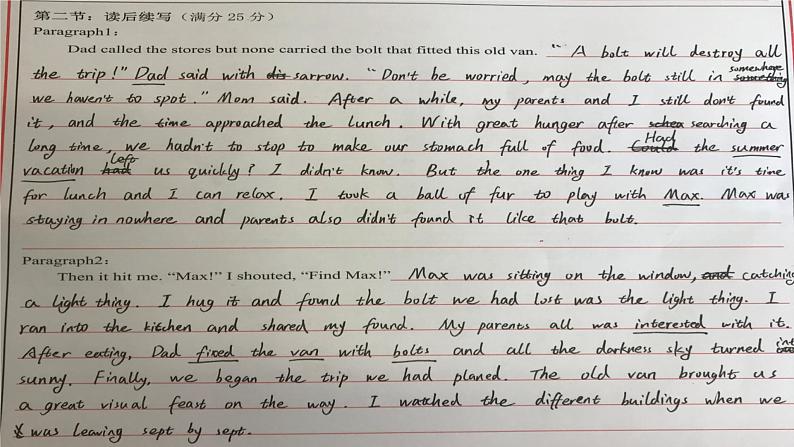 第二节：读后续写（满分 25 分）
Paragraph1：
Dad called the stores but none carried the bolt that fitted this old van. "A bolt will destroy all
the trip!" Dad said with dis sarrow. "Don't be worried, may the bolt still in something somewhere
we haven't to spot." Mom said. After a while, my parents and I still don't found
it, and the time approached the lunch. With great hunger after schea searching a
long time, we hadn't to stop to make our stomach full of food. Could Had the summer
vacation had left us quickly? I didn't know. But the one thing I know was it's time
for lunch and I can relax. I took a ball of fur to play with Max. Max was
staying in nowhere and parents also didn't found it like that bolt.
Paragraph2：
Then it hit me. "Max!" I shouted, "Find Max!" Max was sitting on the window, and catching
a light thing. I hug it and found the bolt we had lost was the light thing. I
ran into the kitchen and shared my found. My parents all was interested with it.
After eating, Dad fixed the van with bolts and all the darkness sky turned into
sunny. Finally, we began the trip we had planed. The old van brought us
a great visual feast on the way. I watched the different buildings when we
was leaving sept by sept.